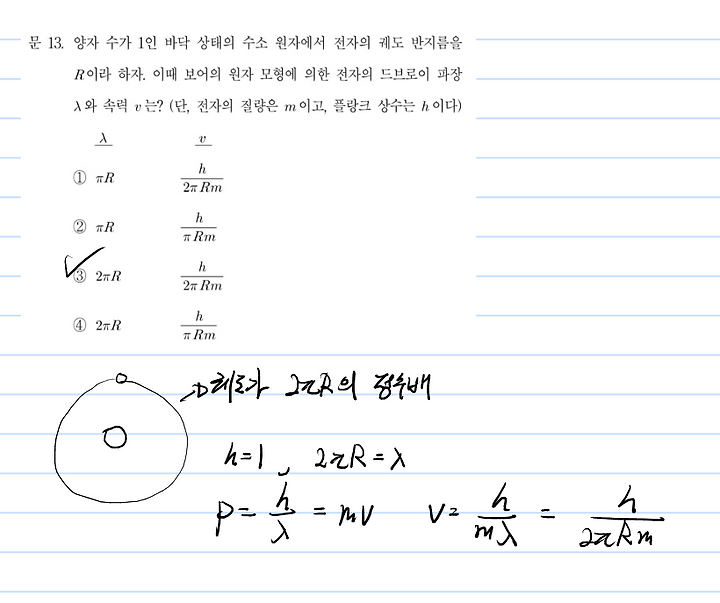 문 13. 양자 수가 1인 바닥 상태의 수소 원자에서 전자의 궤도 반지름을
R이라 하자. 이때 보어의 원자 모형에 의한 전자의 드브로이 파장
λ와 속력 v는? (단, 전자의 질량은 m이고, 플랑크 상수는 h이다)
λ v
① πR h/2πRm
② πR h/πRm
③ 2πR h/2πRm
④ 2πR h/πRm
2πR의 정수배
n=1, 2πR=λ
p = h/λ = mv v = h/mλ = h/2πRm